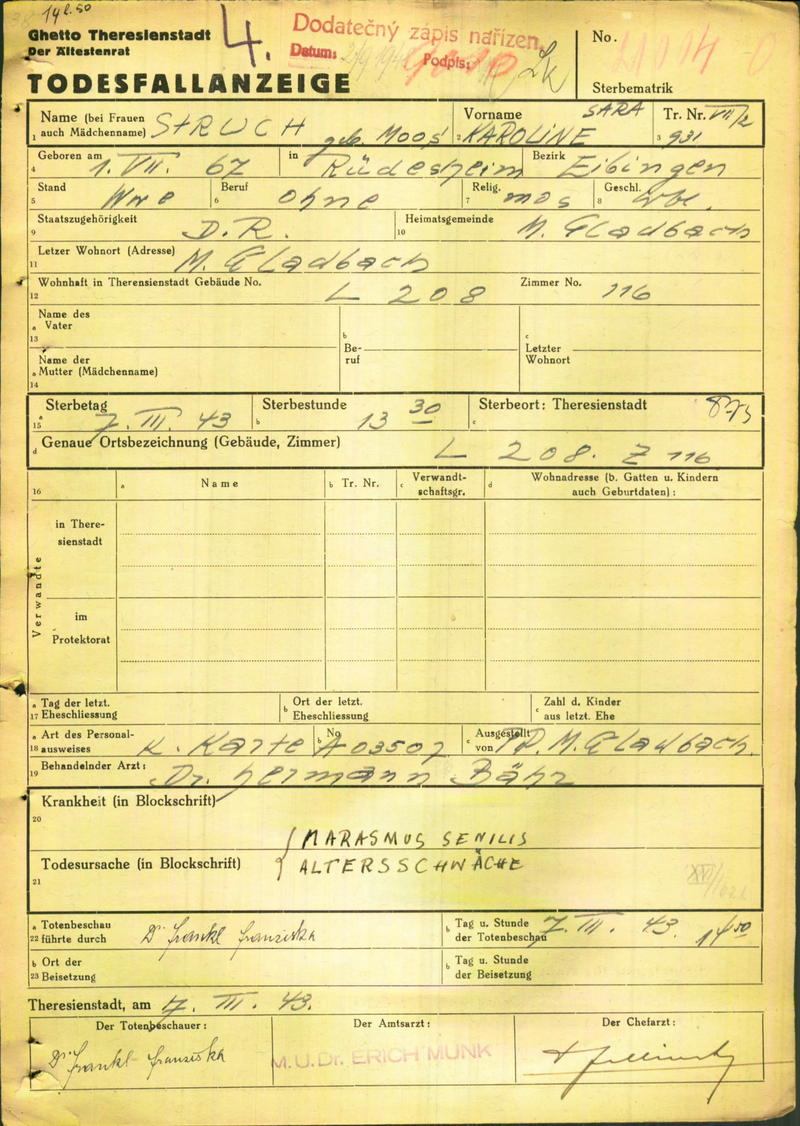 14 l. 50
Ghetto Theresienstadt
Der Ältestenrat
TODESFALLANZEIGE
4.
Dodatečný zápis nařízen.
Datum:
Podpis:
No.
Sterbematrik
1 Name (bei Frauen auch Mädchenname) STRUCH geb. Moos
2 Vorname SARA KAROLINE
3 Tr. Nr. VII/2 931
4 Geboren am 1. VII. 67 in Rüdesheim Bezirk Eibingen
5 Stand Wwe 6 Beruf ohne 7 Relig. mos 8 Geschl. wbl.
9 Staatszugehörigkeit D. R. 10 Heimatsgemeinde M. Gladbach
11 Letzer Wohnort (Adresse) M. Gladbach
12 Wohnhaft in Therensienstadt Gebäude No. L 208 Zimmer No. 116
13 a Name des Vater b Beruf c Letzter Wohnort
14 a Name der Mutter (Mädchenname)
15 a Sterbetag 7. III. 43 b Sterbestunde 13 30 c Sterbeort: Theresienstadt
d Genaue Ortsbezeichnung (Gebäude, Zimmer) L 208. Z 116
16 a Name b Tr. Nr. c Verwandtschaftsgr. d Wohnadresse (b. Gatten u. Kindern auch Geburtdaten):
Verwandte
in Theresienstadt
im Protektorat
17 a Tag der letzt. Eheschliessung b Ort der letzt. Eheschliessung c Zahl d. Kinder aus letzt. Ehe
18 a Art des Personalausweises K. Karte b No A 03507 c Ausgestellt von M. Gladbach.
19 Behandelnder Arzt: Dr. Hermann Bähr
20 Krankheit (in Blockschrift)
MARASMUS SENILIS
21 Todesursache (in Blockschrift) ALTERSSCHWÄCHE
22 a Totenbeschau führte durch Dr Frankl Franziska b Tag u. Stunde der Totenbeschau 7. III. 43. 14 50
23 b Ort der Beisetzung b Tag u. Stunde der Beisetzung
Theresienstadt, am 7. III. 43.
Der Totenbeschauer: Der Amtsarzt: Der Chefarzt:
Dr Frankl Franziska M.U.Dr. ERICH MUNK